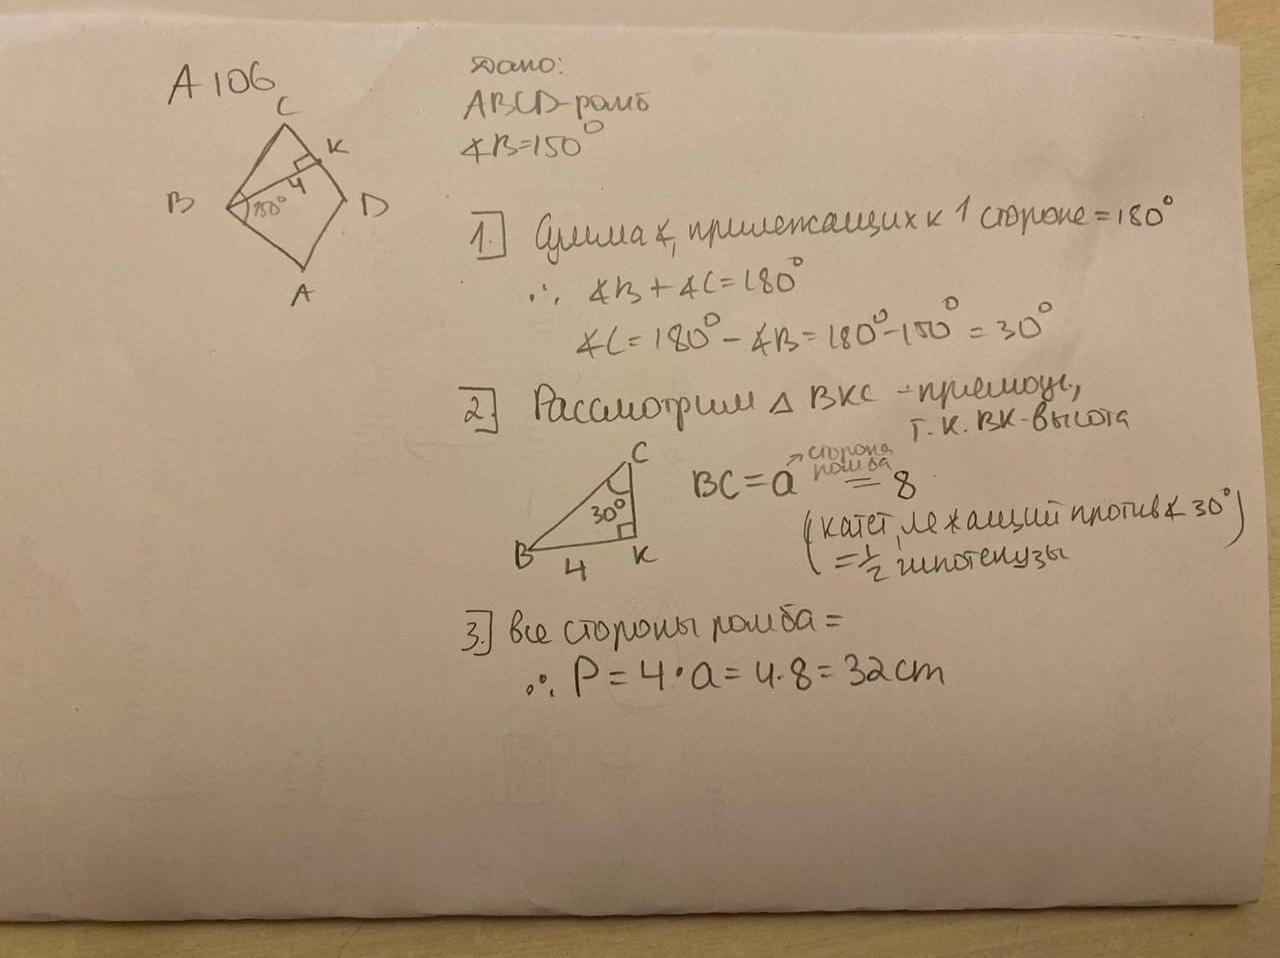 A 106
C
K
4
B
150°
D
A
Дано:
ABCD-ромб
∡B=150°
1. Сумма ∡, прилежащих к 1 стороне = 180°
∴ ∡B + ∡C = 180°
∡C = 180° - ∡B = 180° - 150° = 30°
2. Рассмотрим △ BKC - прямоуг.,
т.к. BK-высота
C
30°
B
4
K
BC = a → сторона ромба = 8
(катет, лежащий против ∡ 30°)
= 1/2 гипотенузы
3. Все стороны ромба =
∴ P = 4 · a = 4 · 8 = 32 cm